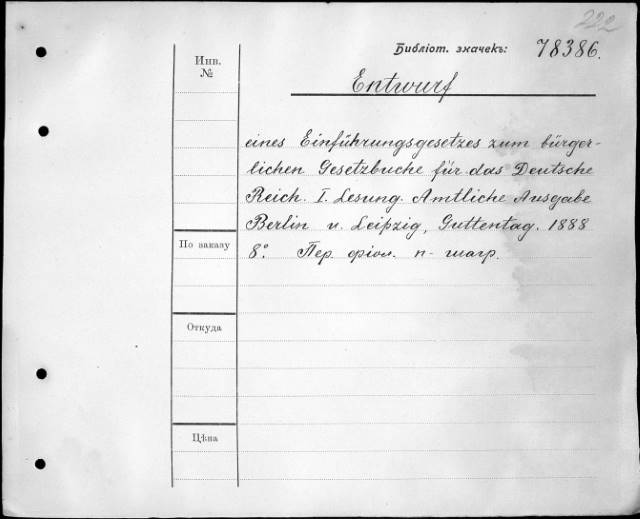 222
Библіот. значекъ: 78386.
Инв.
№
Entwurf
eines Einführungsgesetzes zum bürger-
lichen Gesetzbuche für das Deutsche
Reich. I. Lesung. Amtliche Ausgabe
Berlin u. Leipzig, Guttentag. 1888
8.° Пер. фіол. п-шагр.
По заказу
Откуда
Цѣна